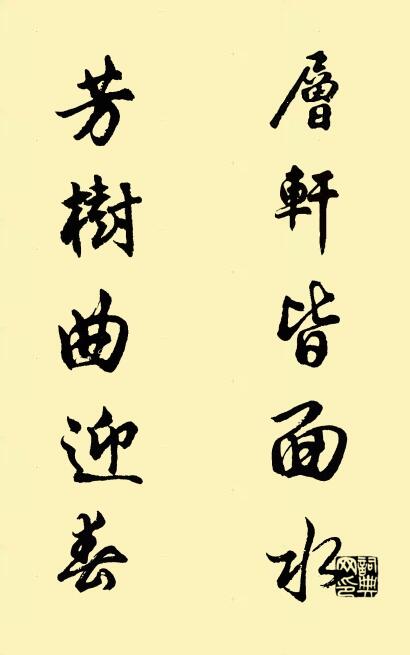 層軒皆面水
芳樹曲迎春
詞典網印